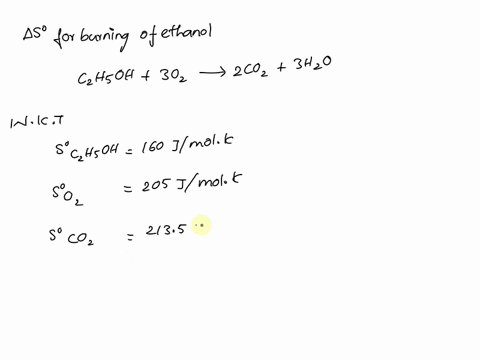 ΔS° for burning of ethanol
C₂H₅OH + 3O₂ → 2CO₂ + 3H₂O
W.K.T
S°C₂H₅OH = 160 J/mol.k
S°O₂ = 205 J/mol.k
S°CO₂ = 213.5